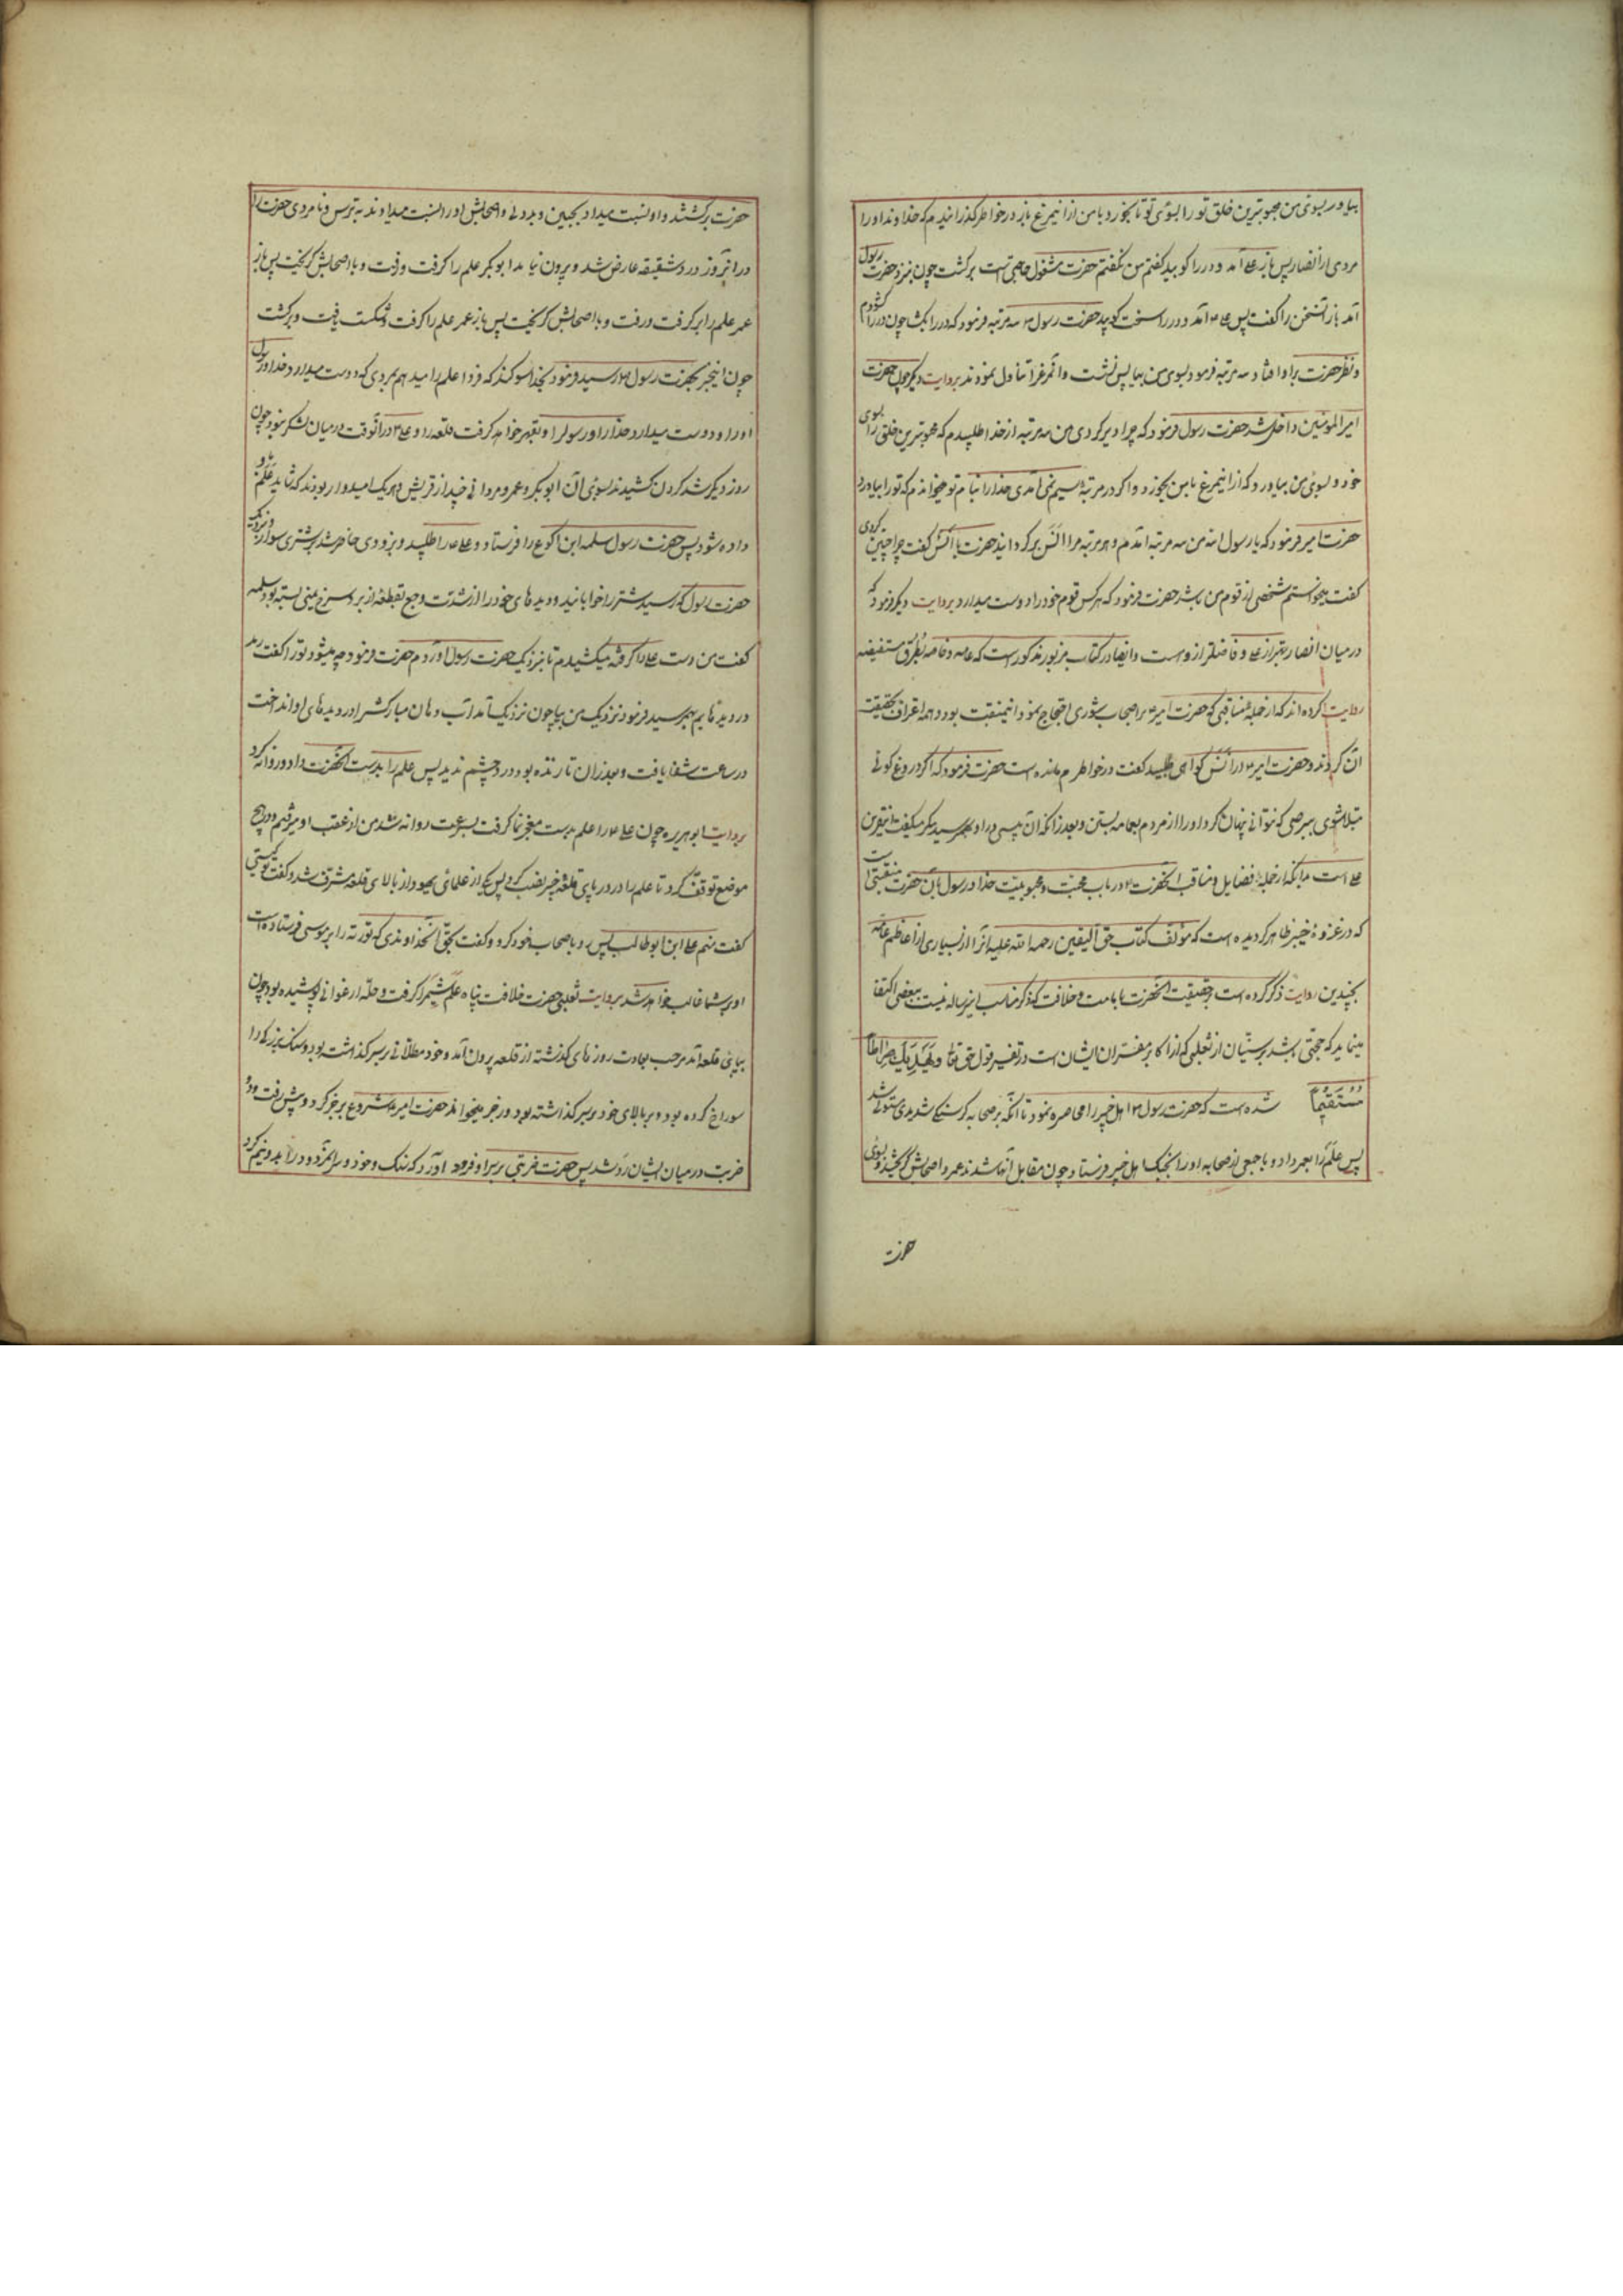 بیاور بسوی من محبوبترین خلق تو را بسوی تو تا بخورد با من ازاینمرغ باز در خواطر کذرانیدم که خداوندا او را
مردی از انصار پس باز علی آمد و در را کوبید کفتم من نکفتم حضرت مشغول حاجتی است برکشت چون بنزد حضرت رسول
آمد باز آنسخن را کفت پس علی ۴ آمد و در را سخت کوبید حضرت رسول ۴ سه مرتبه فرمود که در را بکشا چون در را کشودم
و نظر حضرت براو افتاد سه مرتبه فرمود بسوی من بیا پس نشست و آنمرغرا تناول نمودند بروایت دیکر چون حضرت
امیر المومنین داخل شد حضرت رسول فرمود که چرا دیر کردی من سه مرتبه از خدا طلبیدم که محبوبترین خلق را بسوی
خود بسوی من بیاورد که ازاینمرغ با من بخورد و اکر در مرتبه سیم نمی آمدی خدا را بنام تو میخواندم که تو را بیاورد
حضرت امیر فرمود که یا رسول الله من سه مرتبه آمدم و هر مرتبه مرا انس بر کردانید حضرت با انس کفت چرا چنین کردی
کفت میخواستم شخصی از قوم من باشد حضرت فرمود که هرکس قوم خود را دوست میدارد بروایت دیکر فرمود که
در میان انصار بهتر از علی و فاضلتر ازو است و ایضا در کتاب مزبور مذکور است که عامه و خاصه بطرق مستفیضه
روایت کرده اند که از جمله مناقبی که حضرت امیر ۴ بر اصحاب شوری احتجاج نمود اینمنقبت بود و همه اعتراف بحقیقت
آن کردند و حضرت امیر ۴ در آن انس کواهی طلبید کفت در خواطرم نمانده است حضرت فرمود که اکر دروغ کوئی
مبتلا شوی ببرصی که نتوانی پنهان کرد او را از مردم بعمامه بستن و بعد زانکه آن پیسی در او بهم رسید مکرر میکفت از نفرین
علی است بدانکه از جمله فضایل و مناقب آنحضرت ۴ در باب محبت و محبوبیت خدا و رسول بآن حضرت منقبتی است
که در غزوهٔ خیبر ظاهر کردیده است که مؤلف کتاب حق الیقین رحمه الله علیه آنرا از بسیاری از اعاظم عامه
بچندین روایت ذکر کرده است بر حقیقت آنحضرت بامامت و خلافت که ذکر مناسب این رساله نیست ببعضی اکتفا
مینماید که حجتی باشد بر سنیان از ثعلبی که از اکابر مفسران ایشان است در تفسیر قول حق تعالی وَیَهْدِیَکَ صِرَاطاً
مُسْتَقِیماً شده است که حضرت رسول ۴ اهل خیبر را محاصره نمود تا آنکه بر صحابه کرسنکی شدیدی مستولی شد
پس علم را بعمر داد و با جمعی از صحابه او را بجنک اهل خیبر فرستاد چون مقابل آنها شدند عمر و اصحابش کریختند و بسوی
حضرت
حضرت برکشتند و او نسبت میداد بجبن و بددلی و اصحابش او را نسبت میدادند بترس و نامردی حضرت را
در آنروز درد شقیقه عارض شد و بیرون نیامد ابو بکر علم را کرفت و رفت و با اصحابش کریخت پس باز
عمر علم را بر کرفت و رفت و با اصحابش کریخت پس باز عمر علم را کرفت و شکست یافت و برکشت
چون اینخبر بحضرت رسول ۴ رسید فرمود بخدا سوکند که فردا علم را میدهم بمردی که دوست میدارد خدا و رسول
او را و دوست میدارد خدا را و رسولرا و بقهر خواهد کرفت قلعه را و علی ۴ در آنوقت در میان لشکر نبود چون
روز دیکر شد کردن کشیدند بسوی آن ابو بکر و عمر و مردانی چند از قریش و هر یک امیدوار بودند که شاید علم باو
داده شود پس حضرت رسول سلمه ابن اکوع را فرستاد و علی ۴ را طلبید و بزودی حاضر شد بر شتری سوار و نزدیک
حضرت رسول که رسید شتر را خوابانید و دیدهای خود را از شدت وجع بقطعهٔ از برد سرخ یمنی بسته بود سلمه
کفت من دست علی را کرفته میکشیدم تا بنزدیک حضرت رسول آوردم حضرت فرمود چه میشود تو را کفت رمد
در دیدهایم بهم رسید فرمود نزدیک من بیا چون نزدیک آمد آب دهان مبارکش را در دیدهای او انداخت
در ساعت شفا یافت و بعد زان تا زنده بود درد چشم ندید پس علم را بدست آنحضرت داد و روانه کرد
بروایت ابو هریره چون علی ۴ را علم بدست معجز نما کرفت بسرعت روانه شد من از عقب او میرفتم و در هیچ
موضع توقف نکرد تا علم را در در پای قلعهٔ خیبر نصب کرد پس یکی از علمای یهود از بالای قلعه مشرف شد و کفت تو کیستی
کفت منم علی ابن ابو طالب پس رو باصحاب خود کرد و کفت بحق آنخداوندی که توریة را بر موسی فرستاده است
او بر شما غالب خواهد شد بروایت ثعلبی حضرت خلافت پناه علم شمیر را کرفت و حلّه ارغوانی پوشیده بود چون
بپای قلعه آمد مرحب بعادت روزهای کذشته از قلعه بیرون آمد و خود مطلائی بر سر کذاشته بود و سنک بزرکی را
سوراخ کرده بود و بر بالای خود بر سر کذاشته بود و رجز میخواند حضرت امیر ۴ شروع برجز کرد و پیش رفت و دو
ضربت در میان ایشان رد شد پس حضرت ضربتی بر سر او فرود آورد که سنک و خود و سر آنمردود را بدو نیم کرد